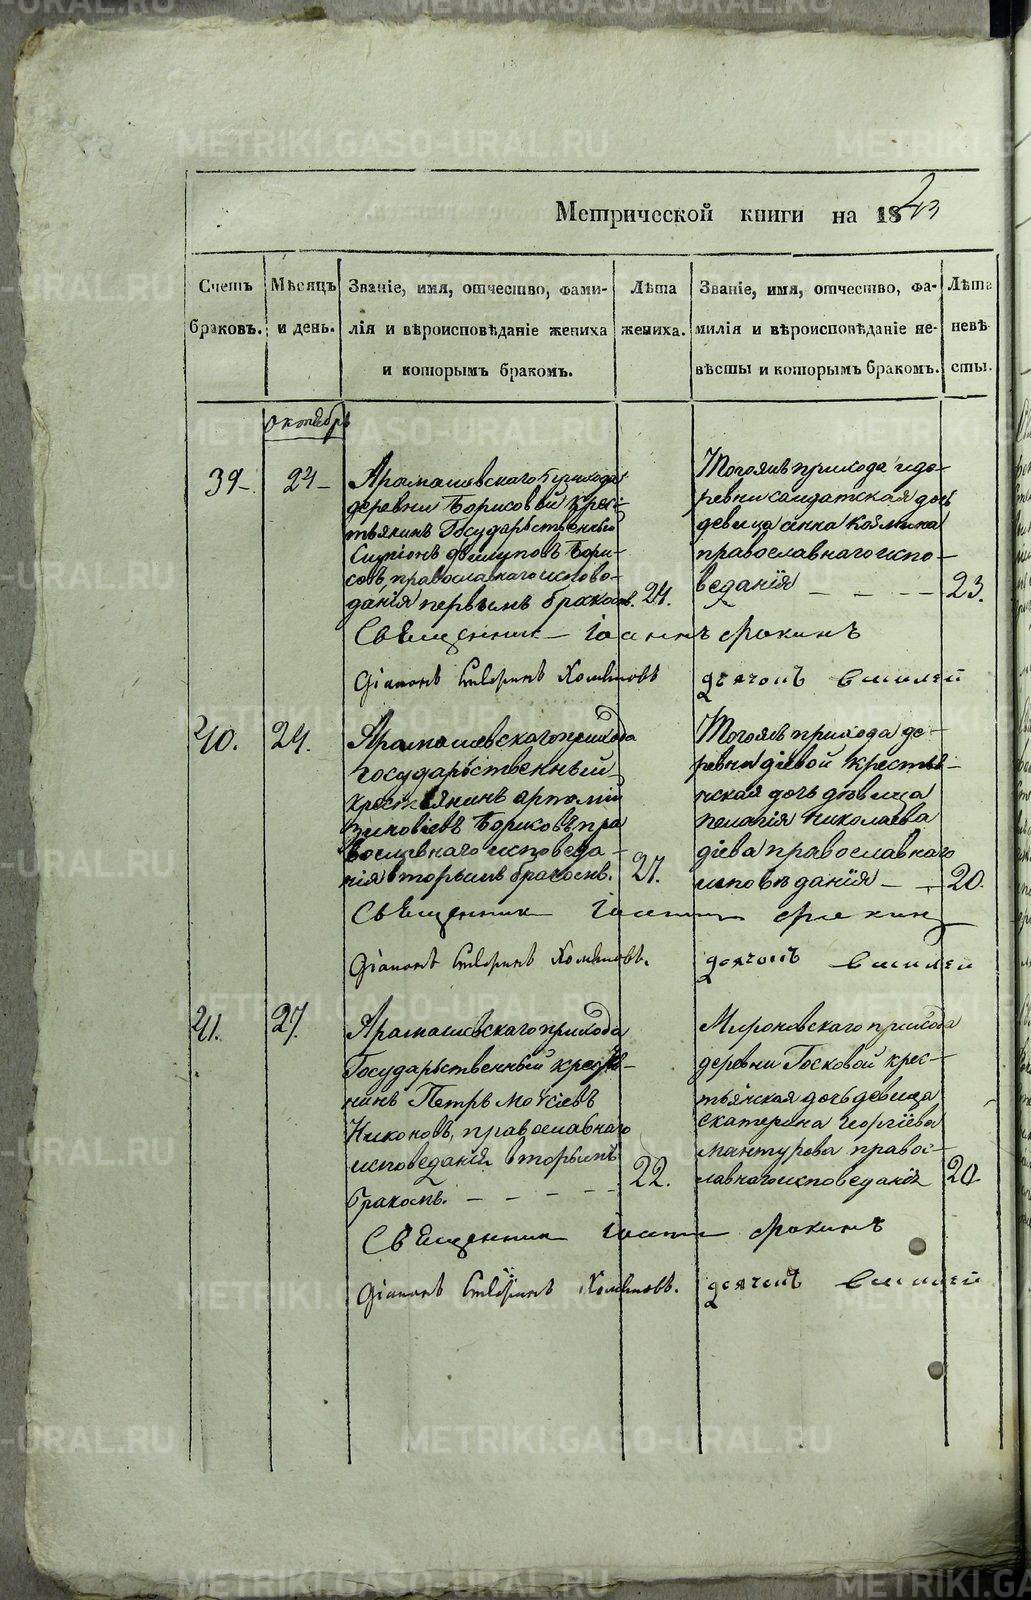 Метрической книги на 1843
Счетъ браковъ.
Мѣсяцъ и день.
Званіе, имя, отчество, фами-
лія и вѣроисповѣданіе жениха
и которымъ бракомъ.
Лѣта жениха.
Званіе, имя, отчество, фа-
милія и вѣроисповѣданіе не-
вѣсты и которымъ бракомъ.
Лѣта невѣ
сты.
октябрь
39 24
Арамашевскаго прихода
деревни Борисовой крес-
тьянинъ Государьственный
Филиповъ Бори-
совъ, православнаго испове-
данія первымъ бракомъ. 24.
Тогожъ прихода и де-
ревни солдатская дочь
девица анна
православнаго испо-
веданія 23.
Священник Іоаннъ Фокинъ
Діаконъ
дьячокъ Василей
40. 24.
Арамашевскаго прихода
государьственный
крестьянинъ артемій
Зиновіевъ пра
вославнаго исповеда-
нія вторымъ бракомъ. 27.
Тогожъ прихода де-
ревни діевой крестья-
нская дочь девица
пелагія николаева
діева православнаго
исповѣданія 20.
Священник Іоаннъ Фокинъ
Діаконъ
дьячокъ Василей
41. 27.
Арамашевскаго прихода
Государьственный крестья-
нинъ Петръ Моѵсіевъ
Никоновъ, православнаго
исповеданія вторымъ
бракомъ. 22.
Мироновскаго прихода
деревни крес-
тьянская дочь девица
екатерина георгіева
мантурова право-
славнаго исповеданія 20.
Священник Іоаннъ Фокинъ
Діаконъ
дьячокъ Василей
METRIKI.GASO-URAL.RU